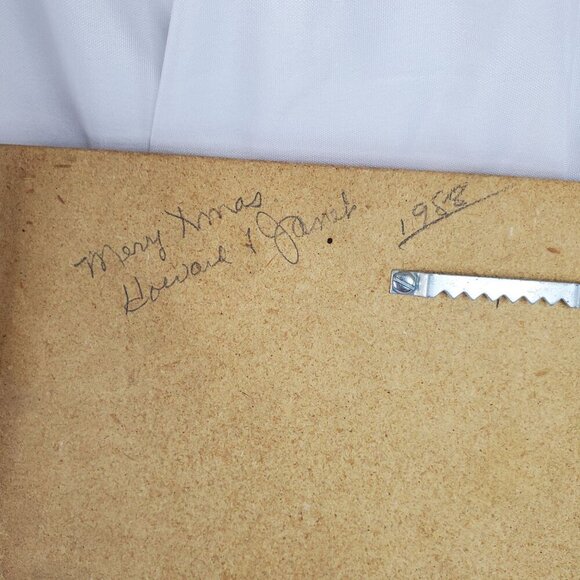 Merry Xmas
Howard & Janet
1958